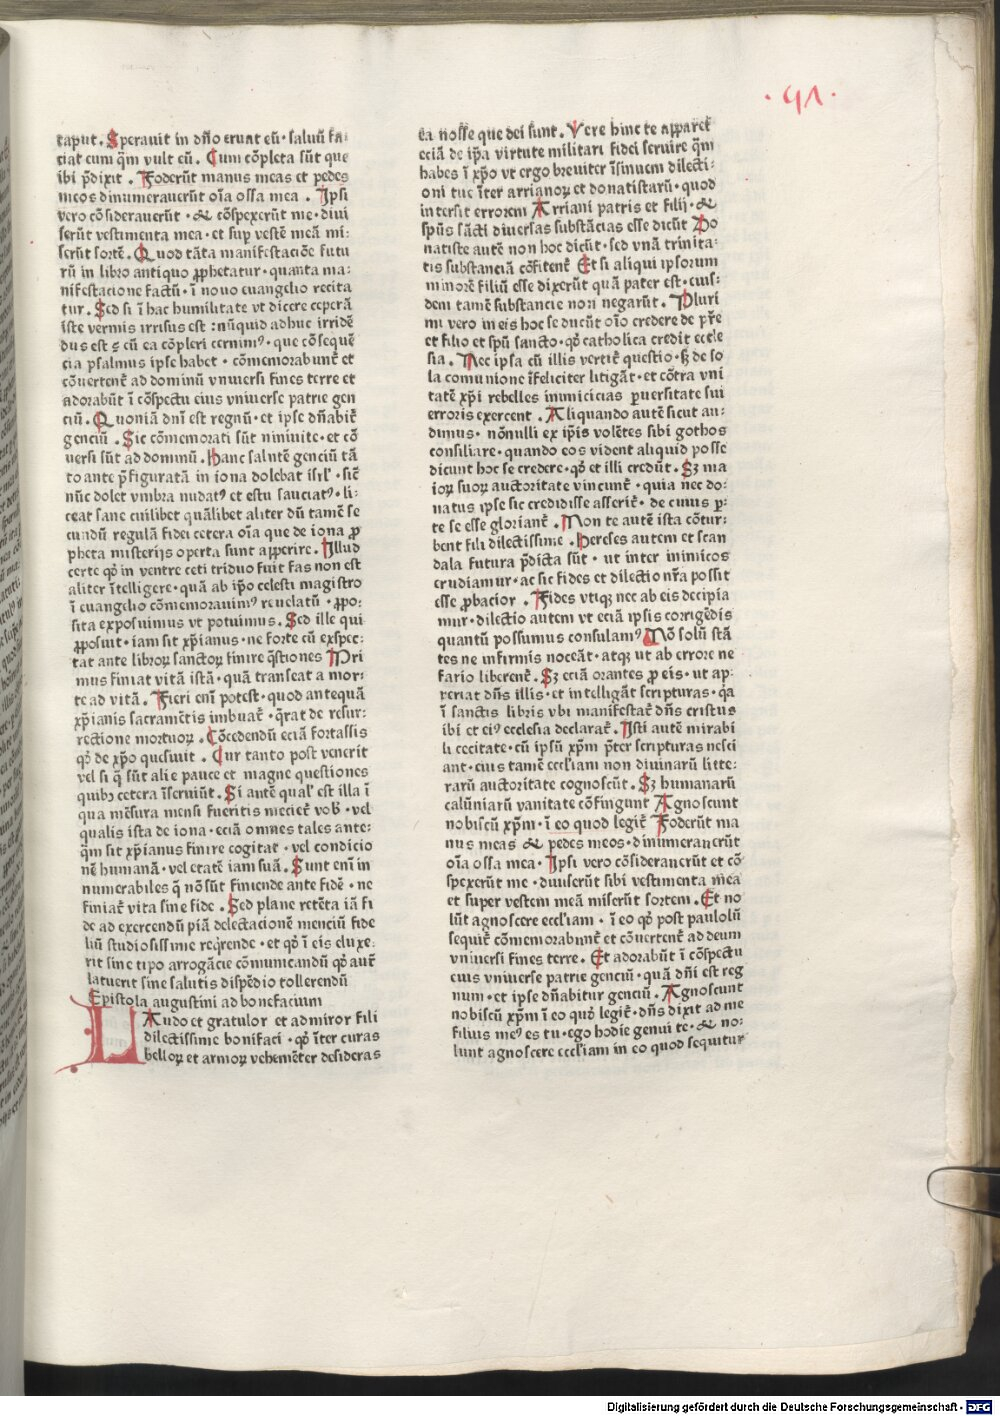 · 41 ·
caput . Sperauit in dño eruat eũ · saluũ fa⸗
ciat eum qm̃ vult eũ . Cum cõpleta sũt que
ibi p̃dixit . Foderũt manus meas et pedes
meos dinumerauerũt oĩa ossa mea . Ipsi
vero cõsiderauerũt · & cõspexerũt me · diui
serũt vestimenta mea · et sup̱ vestẽ meã mi⸗
serũt sortẽ . Quod tãta manifestaciõe futu
rũ in libro antiquo ꝓphetatur · quanta ma⸗
nifestacione factũ · ĩ nouo euangelio recita
tur . Sed si ĩ hac humilitate vt dicere ceperã
iste vermis irrisus est : nũquid adhuc irridẽ
dus est ꝯ cũ ea cõpleri cernimꝰ · que cõsequẽ
cia psalmus ipse habet · cõmemorabunt̃ et
cõuertent̃ ad dominũ vniuersi fines terre et
adorabũt ĩ cõspectu eius vniuerse patrie gen
ciũ . Quoniã dnĩ est regnũ · et ipse dñabit̃
genciũ . Sic cõmemorati sũt niniuite · et cõ
uersi sũt ad dominũ . Hanc salutẽ genciũ tã
to ante p̃figuratã in iona dolebat isrl̃ · sic̃
nũc dolet vmbra nudatꝰ et estu sauciatꝰ · li⸗
ceat sane cuilibet quãlibet aliter dũ tamẽ se
cundũ regulã fidei cetera oĩa que de iona ꝓ
pheta misterijs operta sunt apperire . Illud
certe qd̕ in ventre ceti triduo fuit fas non est
aliter ĩtelligere · quã ab ip̃o celesti magistro
ĩ euangelio cõmemorauimꝰ reuelatũ · ꝓpo⸗
sita exposuimus vt potuimus . Sed ille qui
ꝓposuit · iam sit xp̃ianus · ne forte cũ expec⸗
tat ante libroꝝ sanctoꝝ finire q̃stiones Pri
mus finiat vitã istã · quã transeat a mor⸗
te ad vitã . Fieri enĩ potest · quod antequã
xp̃ianis sacramẽtis imbuat̃ · q̃rat de resur⸗
rectione mortuoꝝ . Cõcedendũ eciã fortassis
qd̕ de xp̃o quesiuit . Cur tanto post venerit
vel si q̃ sũt alie pauce et magne questiones
quibꝫ cetera ĩseruiũt . Si autẽ qual̕ est illa ĩ
qua mẽsura mensi fueritis meciet̃ vob̕ · vel
qualis ista de iona · eciã omnes tales ante⸗
qm̃ sit xp̃ianus finire cogitat̃ · vel condicio
nẽ humanã · vel etatẽ iam suã . Sunt enĩ in
numerabiles q̃ nõ sũt finiende ante fidẽ · ne
finiat̃ vita sine fide . Sed plane retẽta iã fi
de ad exercendũ piã delectacionẽ menciũ fide
liũ studiosissime req̃rende · et qd̕ ĩ eis eluxe
rit sine tipo arrogãcie cõmunicandũ qd̕ aut̃
latuerit sine salutis dispẽdio tollerendũ
Epistola augustini ad bonefacium
LAudo et gratulor et admiror fili
dilectissime bonifaci · qd̕ ĩter curas
belloꝝ et armoꝝ vehemẽter desideras
ea nosse que dei sunt . Vere hinc te apparet̃
eciã de ip̃a virtute militari fidei seruire qm̃
habes ĩ xp̃o vt ergo breuiter ĩsinuem dilecti⸗
oni tue ĩter arrianoꝝ et donatistarũ · quod
intersit errorem Arriani patris et filij · &
spũs sãcti diuersas substãcias esse dicũt Do
natiste autẽ non hoc dicũt · sed vnã trinita⸗
tis substanciã cõfitent̃ Et si aliqui ipsorum
minorẽ filiũ esse dixerũt quã pater est · eius⸗
dem tamẽ substancie non negarũt . Pluri
mi vero in eis hoc se ducũt oĩo credere de pr̃e
et filio et spũ sancto · qd̕ catholica credit eccle
sia . Nec ipsa cũ illis vertit̃ questio · sꝫ de so
la comunione ĩfeliciter litigãt · et cõtra vni
tatẽ xp̃i rebelles inimicicias ꝑuersitate sui
erroris exercent . Aliquando autẽ sicut au⸗
diuius · nõnulli ex ip̃is volẽtes sibi gothos
consiliare · quando eos vident aliquid posse
dicunt hoc se credere · qd̕ et illi credũt . Sꝫ ma
ioꝝ suoꝝ auctoritate vincunt̃ · quia nec do⸗
natus ipse sic credidisse asserit̃ · de cuius p⸗
te se esse gloriant̃ . Non te autẽ ista cõtur⸗
bent fili dilectissime . Hereses autem et scan
dala futura p̃dicta sũt · ut inter inimicos
erudiamur · ac sic fides et dilectio nr̃a possit
esse ꝓbacior . Fides vtiqꝫ nec ab eis decipia
mur · dilectio autem vt eciã ipsis corrigẽdis
quantũ possumus consulamꝰ Nõ solũ stã
tes ne infirmis noceãt · atqꝫ ut ab errore ne
fario liberent̃ . Sꝫ eciã orantes ꝓ eis · ut ap⸗
reriat dñs illis · et intelligãt scripturas · q̃a
ĩ sanctis libris vbi manifestat̃ dñs cristus
ibi et eiꝰ ecclesia declarat̃ . Isti autẽ mirabi
li cecitate · cũ ipsũ xp̃m p̃ter scripturas nesci
ant · eius tamẽ eccl̕iam non diuinarũ litte⸗
rarũ auctoritate cognoscũt . Sꝫ humanarũ
calũniarũ vanitate cõfingunt Agnoscunt
nobiscũ xp̃m · ĩ eo quod legit̃ Foderũt ma
nus meas & pedes meos · dinumerauerũt
oĩa ossa mea · Ipsi vero cõsiderauerũt et cõ
spexerũt me · diuiserũt sibi vestimenta mea
et super vestem meã miserũt sortem . Et no
lũt agnoscere eccl̕iam · ĩ eo qd̕ post paulolũ
sequit̃ cõmemorabunt̃ et cõuertent̃ ad deum
vniuersi fines terre . Et adorabũt ĩ cõspectu
eius vniuerse patrie genciũ · quã dñi est reg
num · et ipse dñabitur genciũ . Agnoscunt
nobiscũ xp̃m ĩ eo qud̕ legit̃ · dñs dixit ad me
filius meꝰ es tu · ego hodie genui te · & no⸗
lunt agnoscere eccl̕iam in eo quod sequitur
Digitalisierung gefördert durch die Deutsche Forschungsgemeinschaft - DFG